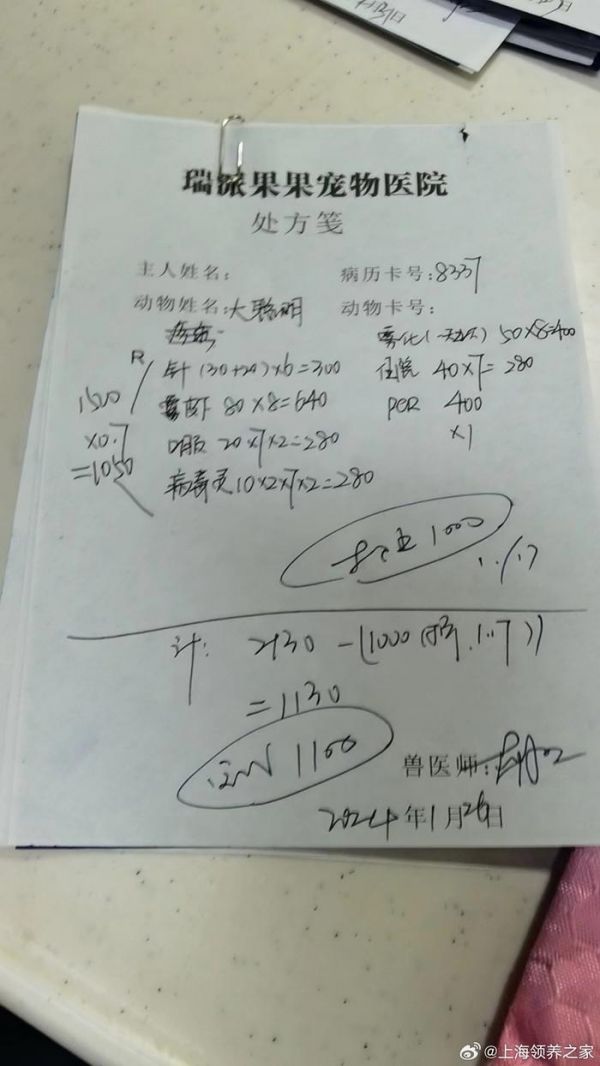 瑞派果果宠物医院
处方笺
主人姓名: 病历卡号:8337
动物姓名:大聪明 动物卡号:
R
针 (30+20)×6=300
80×8=640
口服 20×7×2=280
病毒灵10×2×7×2=280
1500
×0.7
=1050
雾化 50×8=400
住院 40×7=280
PCR 400
×1
1000
计: 2130 -(1000
=1130
1100
兽医师:
2024年1月26日
@上海领养之家